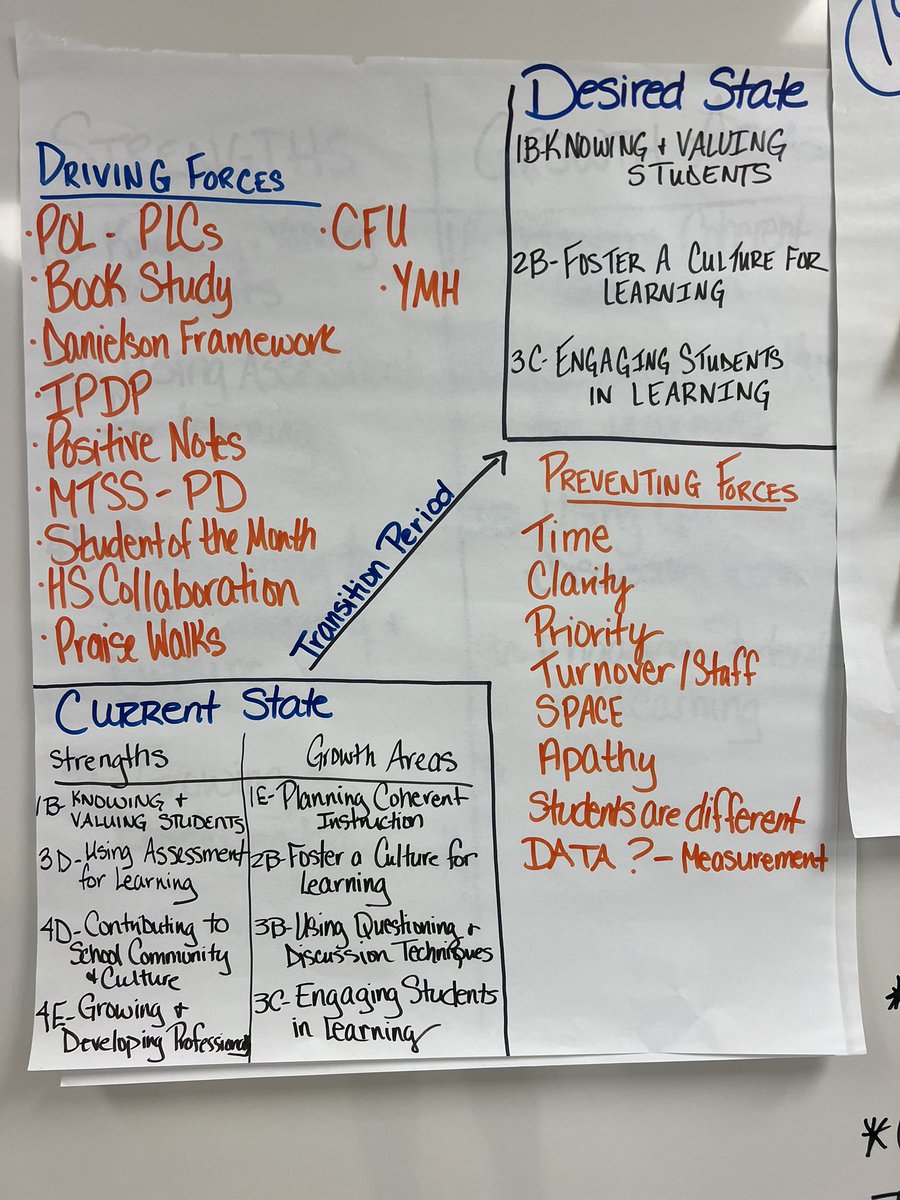 DRIVING FORCES
· POL - PLCs
· CFU
· Book Study
· YMH
· Danielson Framework
· IPDP
· Positive Notes
· MTSS - PD
· Student of the Month
· HS Collaboration
· Praise Walks
Desired State
1B-KNOWING + VALUING
STUDENTS
2B- FOSTER A CULTURE FOR
LEARNING
3C- ENGAGING STUDENTS
IN LEARNING
Transition Period
PREVENTING FORCES
Time
Clarity
Priority
Turnover/Staff
SPACE
Apathy
Students are different
DATA ? - Measurement
CURRENT STATE
Strengths
1B- KNOWING +
VALUING STUDENTS
3D- Using Assessment
for Learning
4D- Contributing to
School Community
+ Culture
4E- Growing +
Developing Professionally
Growth Areas
1E- Planning Coherent
Instruction
2B- Foster a Culture for
Learning
3B- Using Questioning +
Discussion Techniques
3C- Engaging Students
in Learning